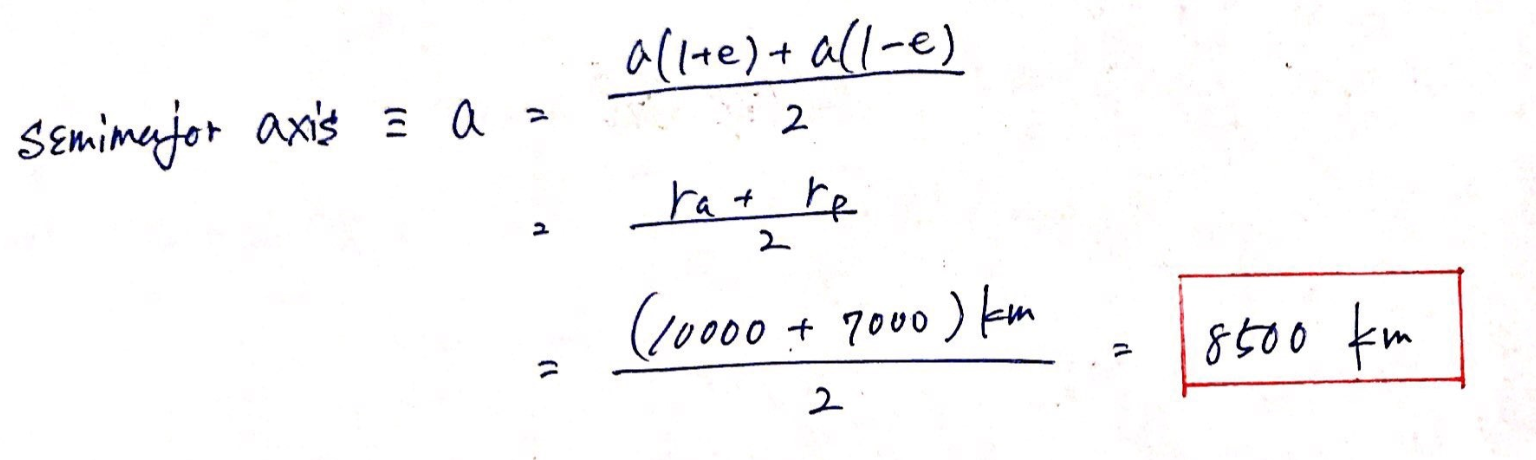 semimajor axis ≡ a = a(1+e) + a(1-e) / 2
= ra + rp / 2
= (10000 + 7000) km / 2 = 8500 km